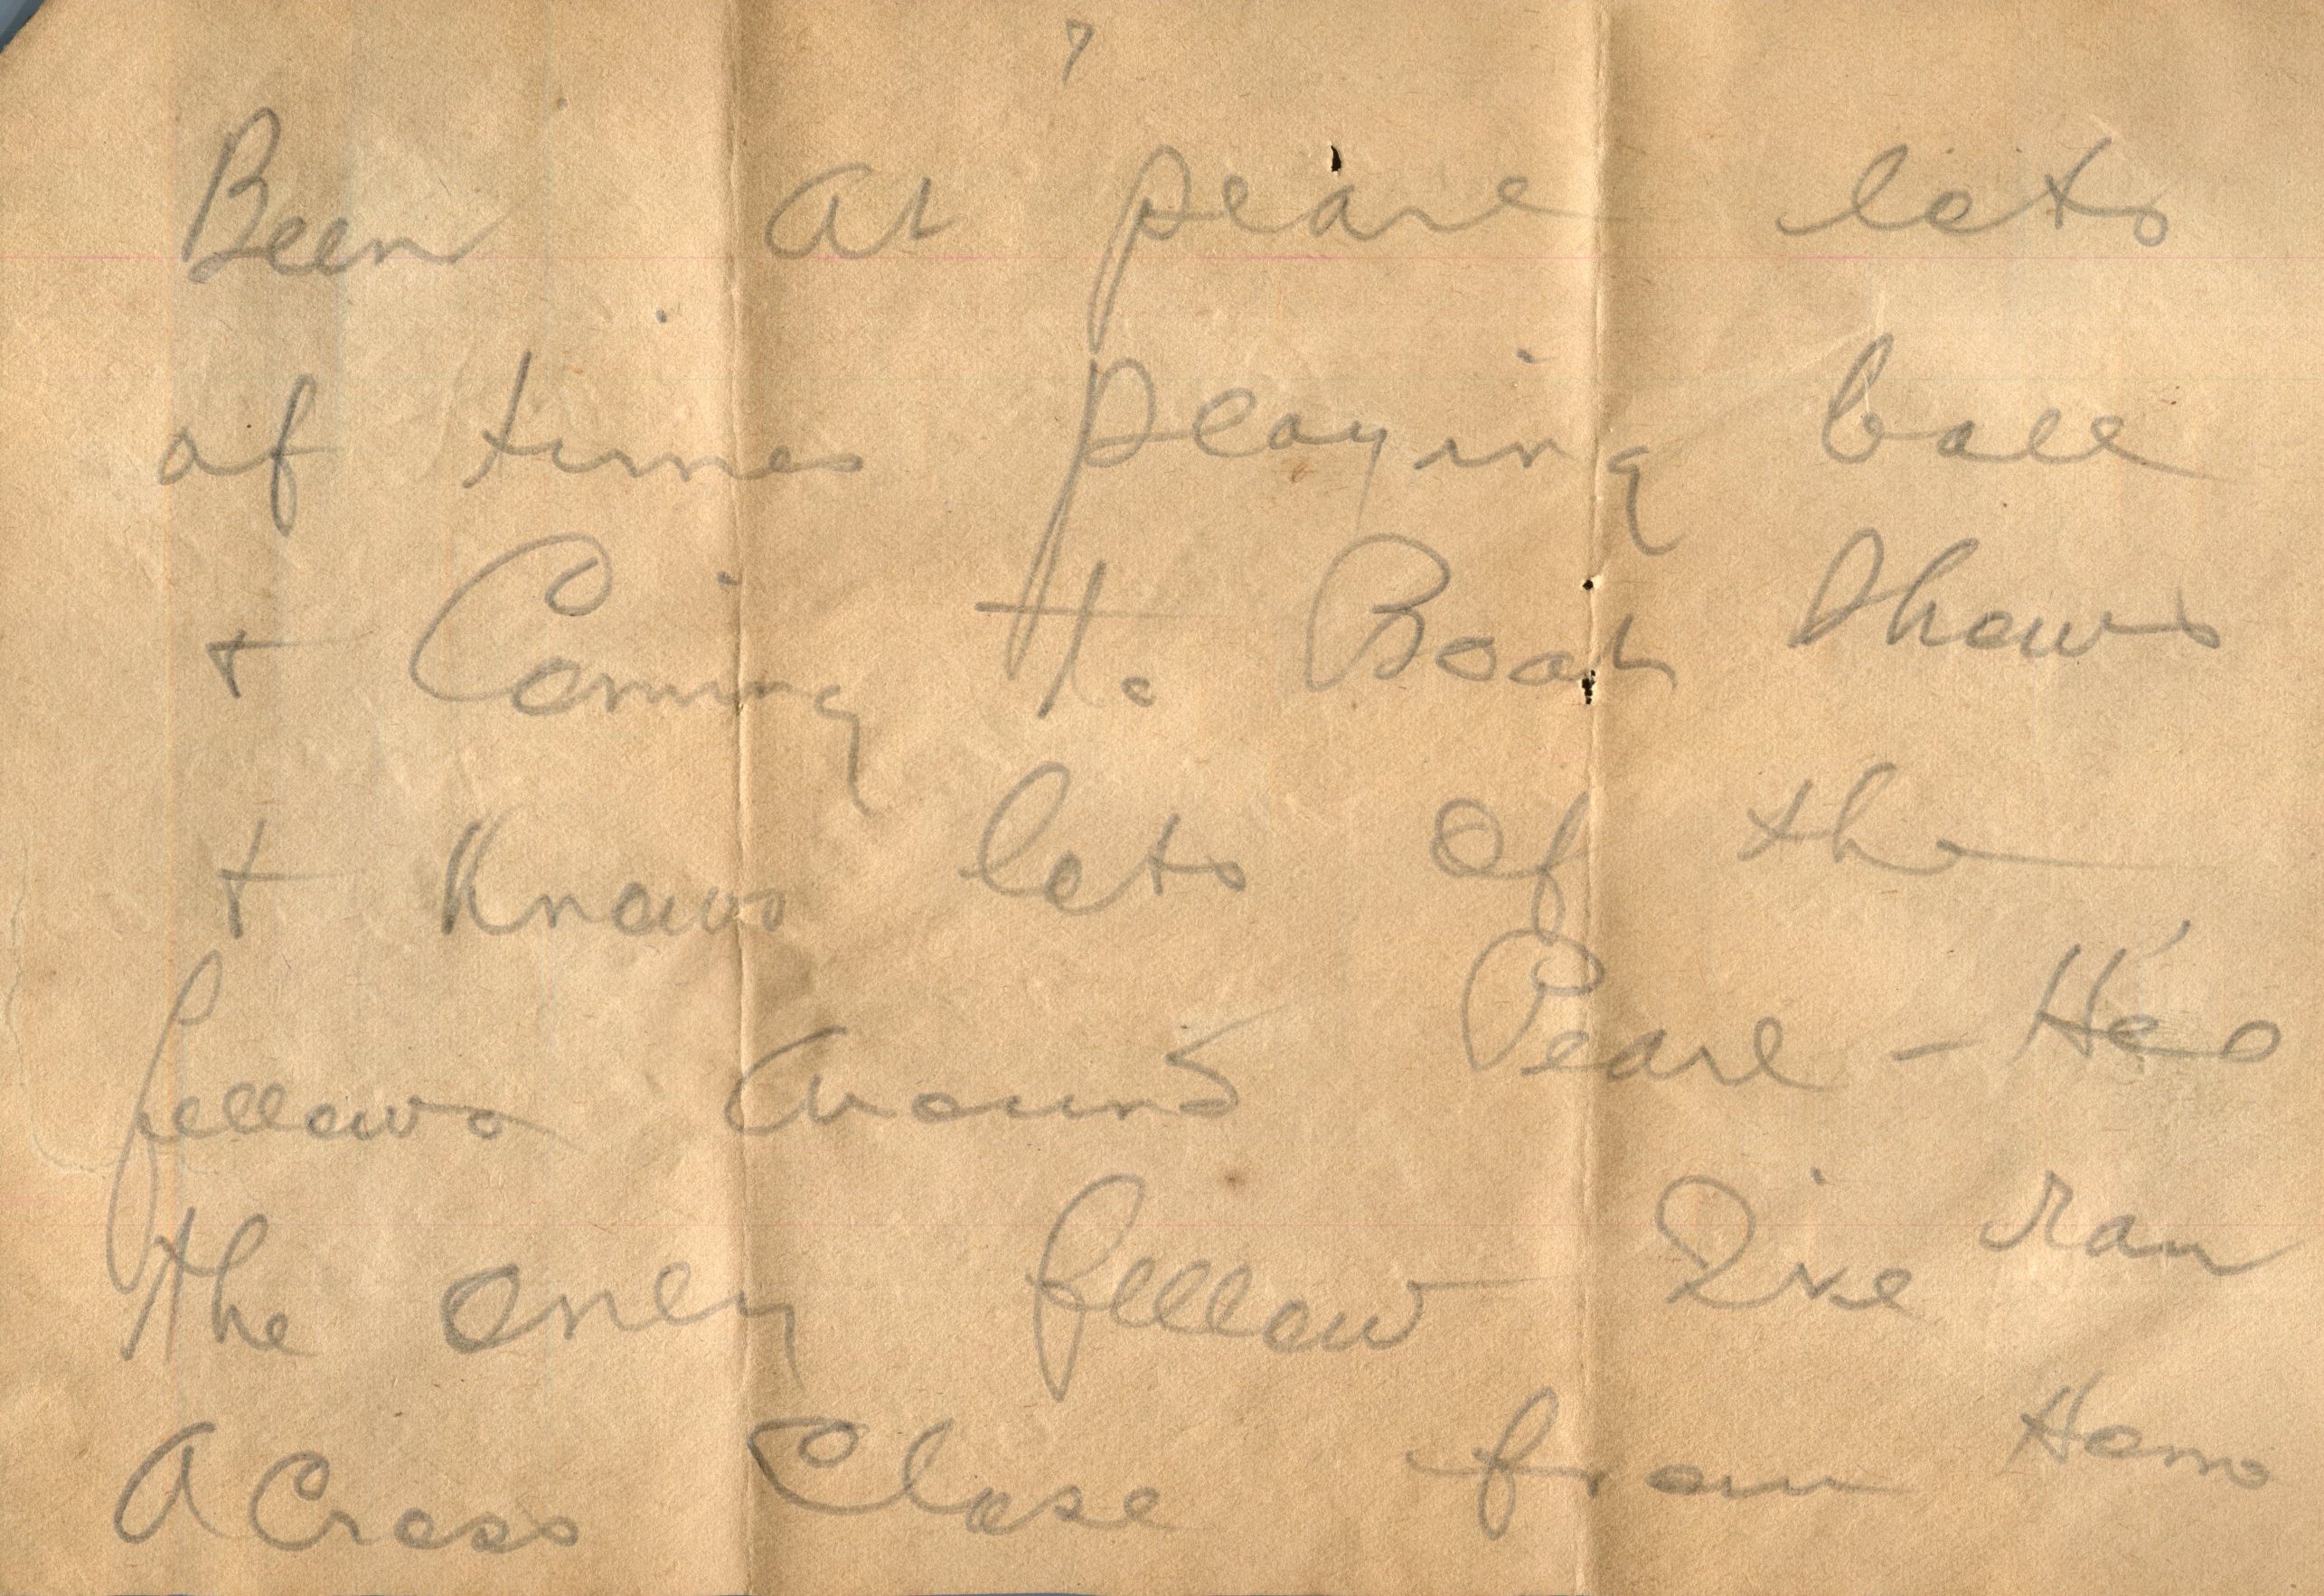 7
Been at pearl lots
of times playing ball
+ Coming to Boat Shows
+ Knows lots of the
fellows Around Pearl - He's
the only fellow I've ran
ACross Close from Home